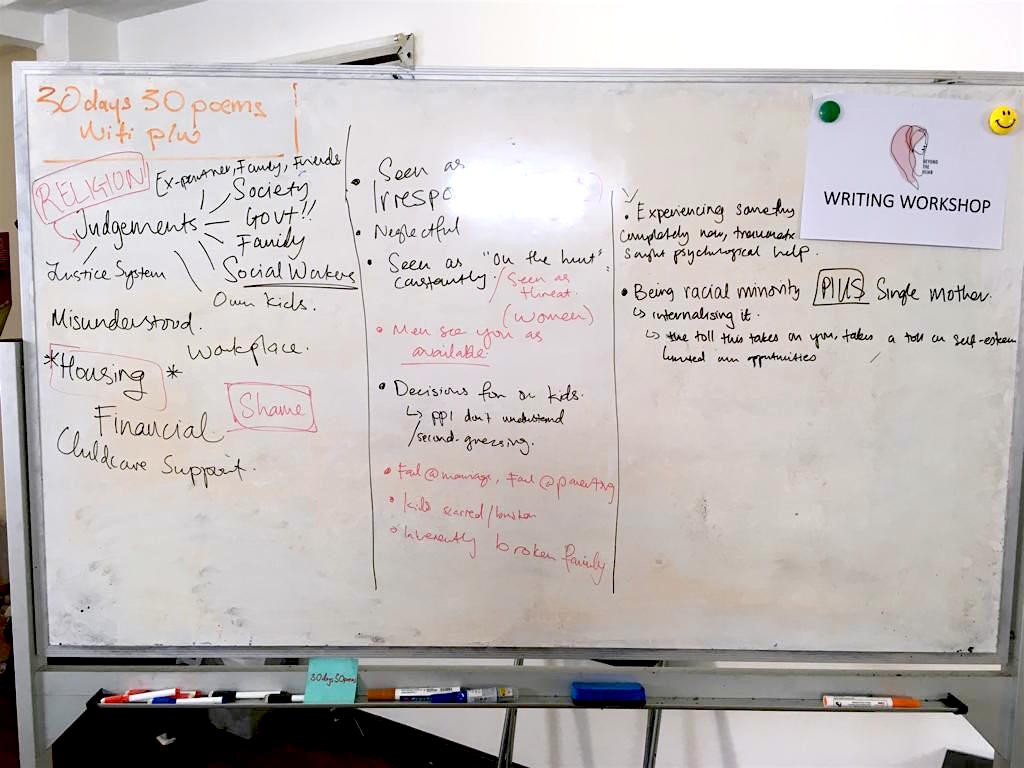 30days 30poems
Wifi p/w
RELIGION
Ex-partner, Family, Friends
Society
Judgements
Govt!!
Family
Justice System
Social Workers
Own kids.
Misunderstood.
Workplace.
*Housing*
Shame
Financial
Childcare Support.
• Seen as
Irrespo
• Neglectful
• Seen as "on the hunt"
constantly.
/Seen as
threat.
(women)
• Men see you as
available.
• Decisions for our kids.
↳ ppl don't understand
/second-guessing.
• Fail @marriage, Fail @parenting
• kids scarred/broken
• Inherently broken family
• Experiencing something
completely new, traumatic
sought psychological help.
• Being racial minority PLUS Single mother.
↳ internalising it.
↳ the toll this takes on you, takes a toll on self-esteem
opportunities
BEYOND
THE
HIJAB
WRITING WORKSHOP
30days 30poems